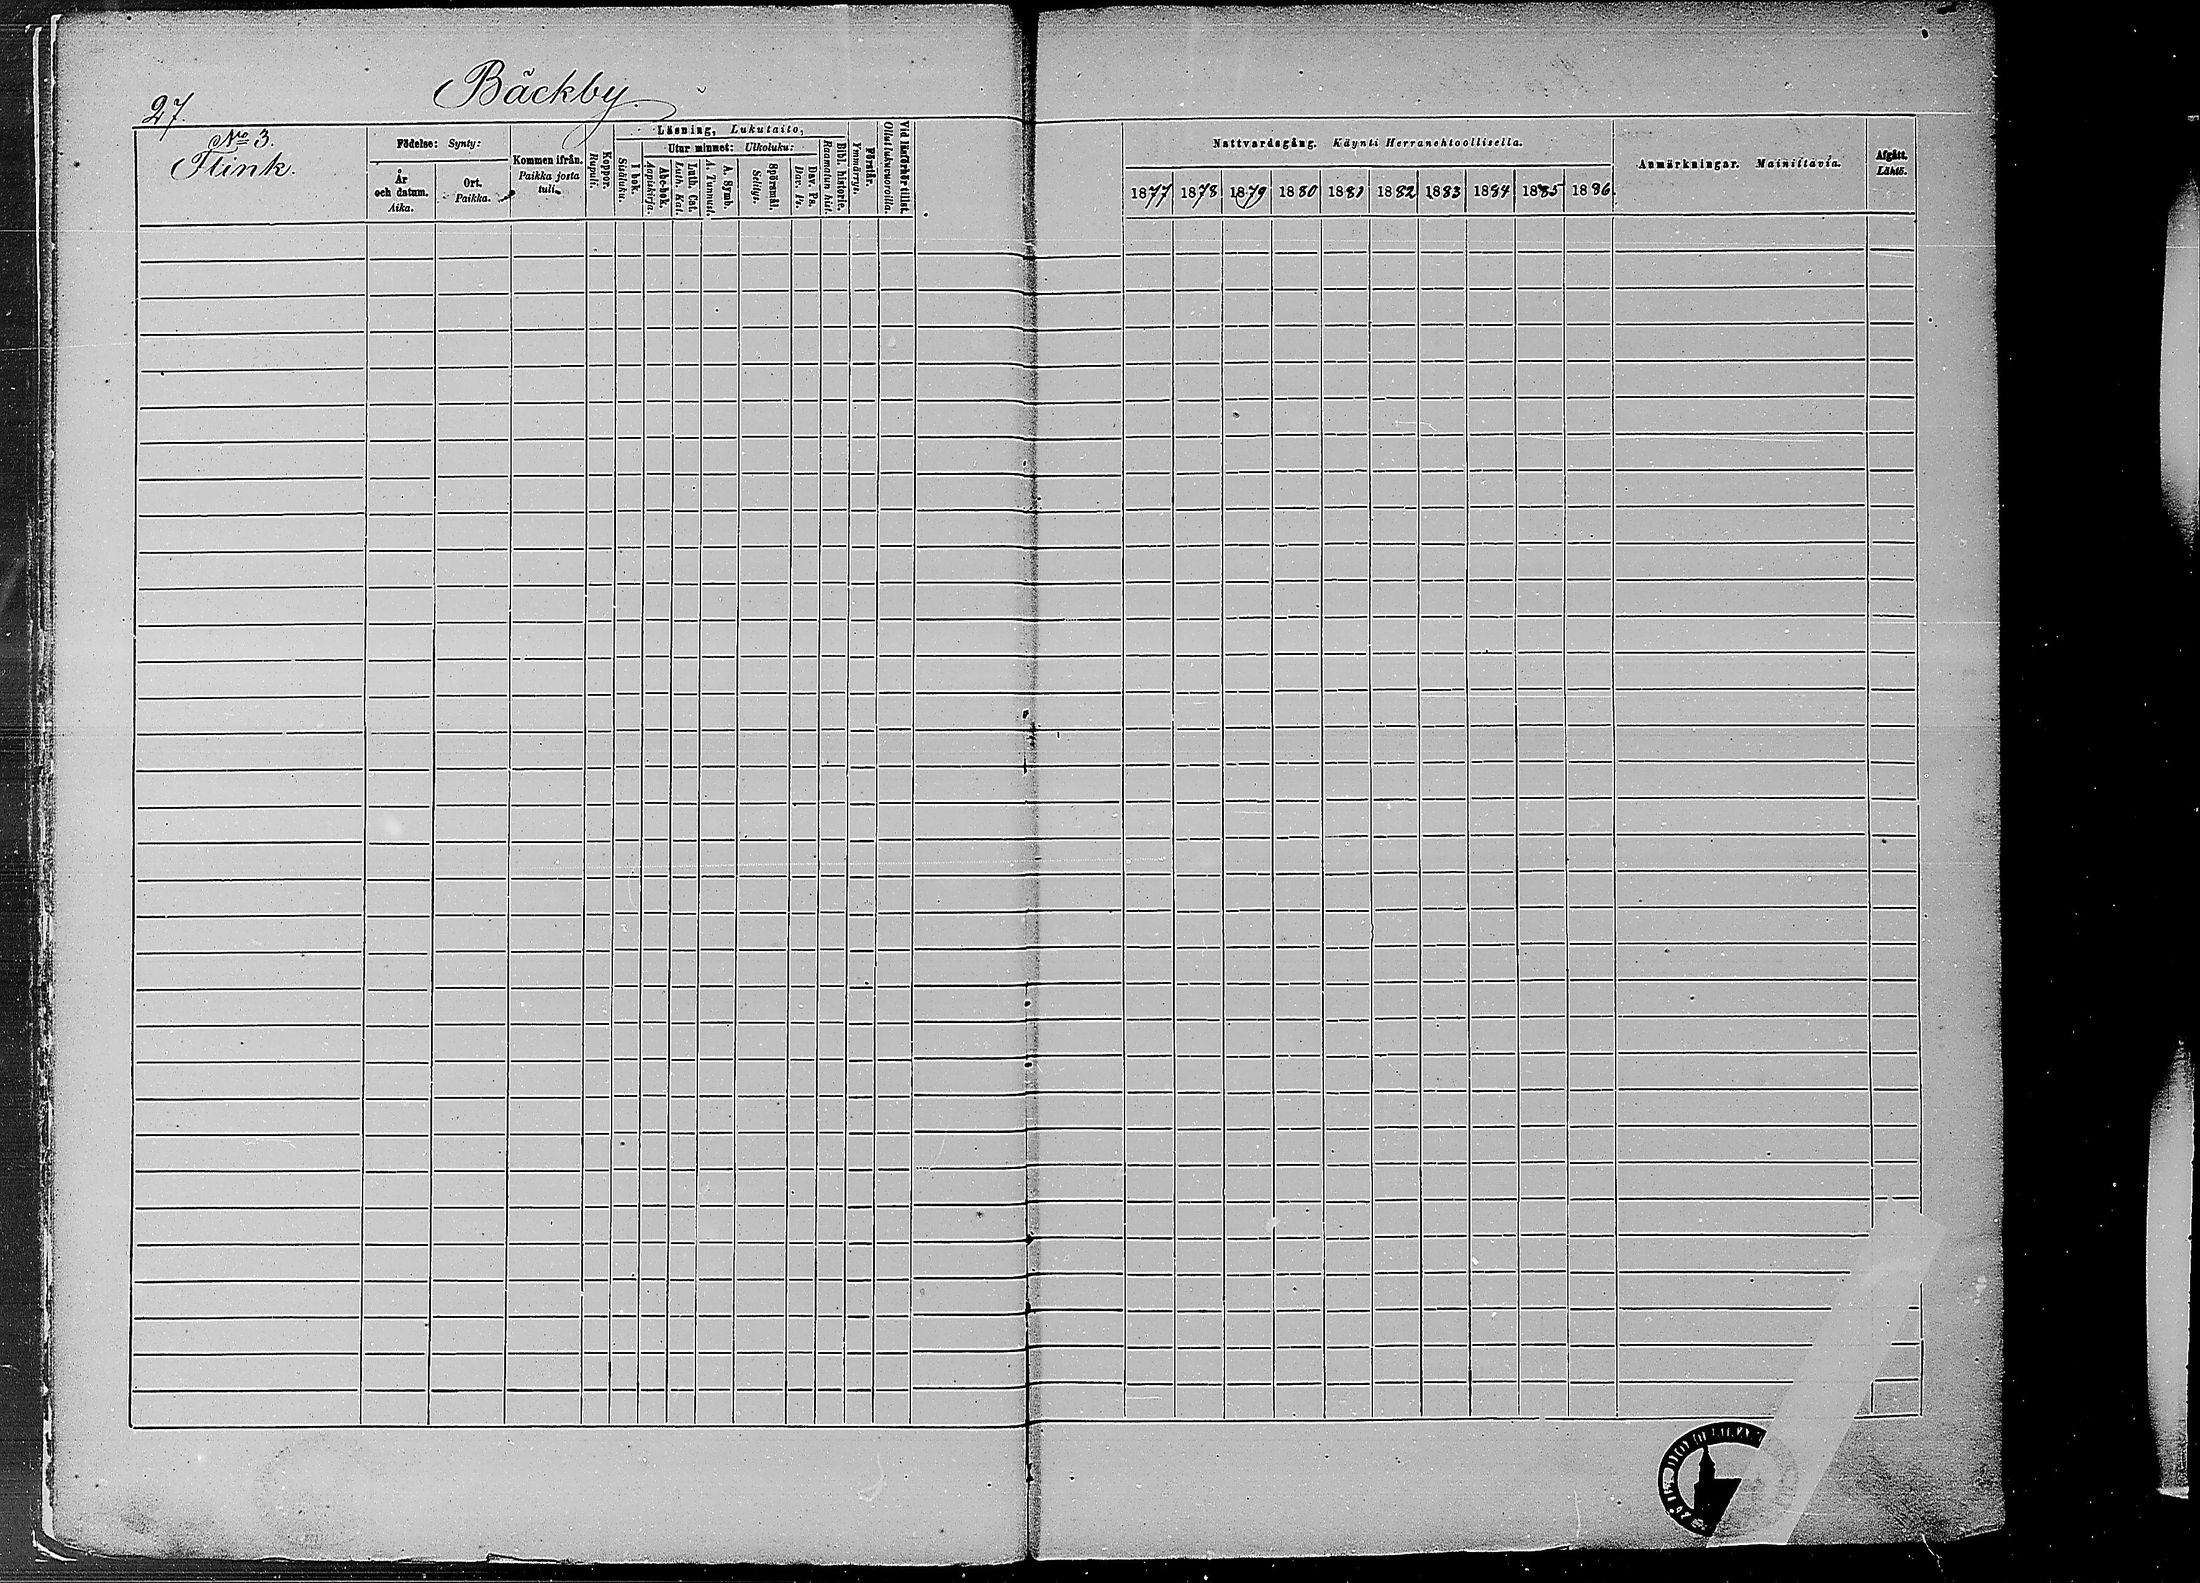 Bäckby.
27.
No 3.
Flink.
Födelse: Synty:
År och datum. Aika.
Ort. Paikka.
Kommen ifrån. Paikka josta tuli.
Koppor. Rupuli.
Läsning, Lukutaito,
I bok. Sisäluku.
Utur minnet: Ulkoluku:
Abc-bok. Aapiskirja.
Luth. Cat. Luth. Kat.
A. Symb. A. Tunnust.
Spörsmål. Selitys.
Dav. Ps. Dav. Ps.
Bibl. historie. Raamatun hist.
Förstår. Ymmärrys.
Vid läsförhör tillst. Ollut lukuvuoroilla.
Nattvardsgång. Käynti Herranehtoollisella.
1877 1878 1879 1880 1881 1882 1883 1884 1885 1886.
Anmärkningar. Mainittavia.
Afgått. Lähtö.